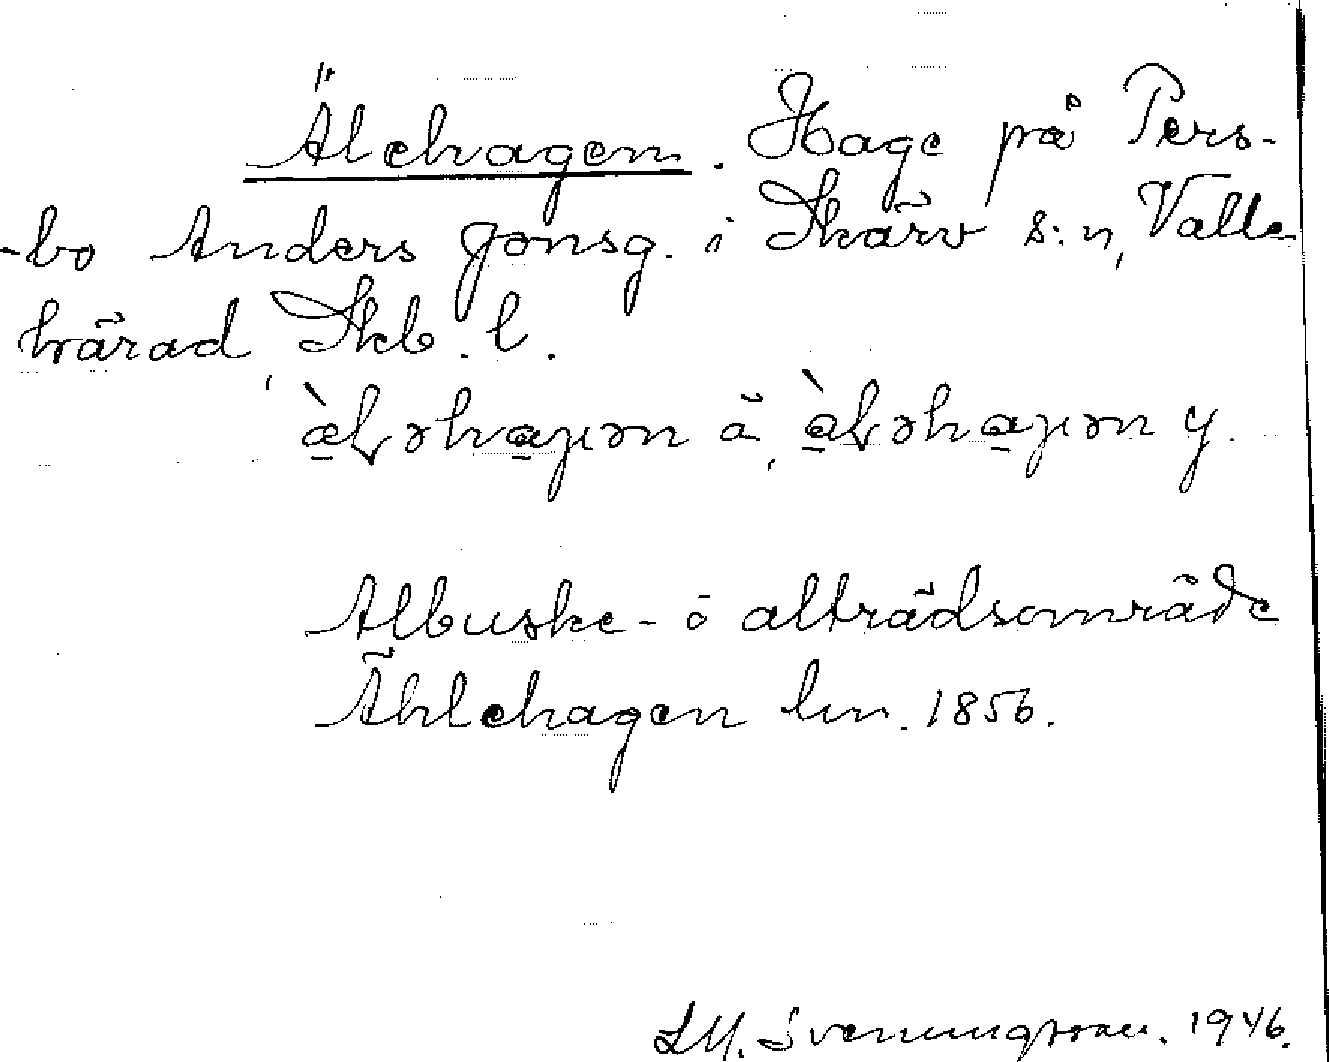 Älehagen. Hage på Pers-
-bo Anders Jonsg. i Skärv s:n, Valle
härad, Skb. l.
àLəhaɡən ä, àLəhaɡən y.
Albuske- o alträdsområde
Ählehagen lm. 1856.
L M. Svenungsson. 1946.